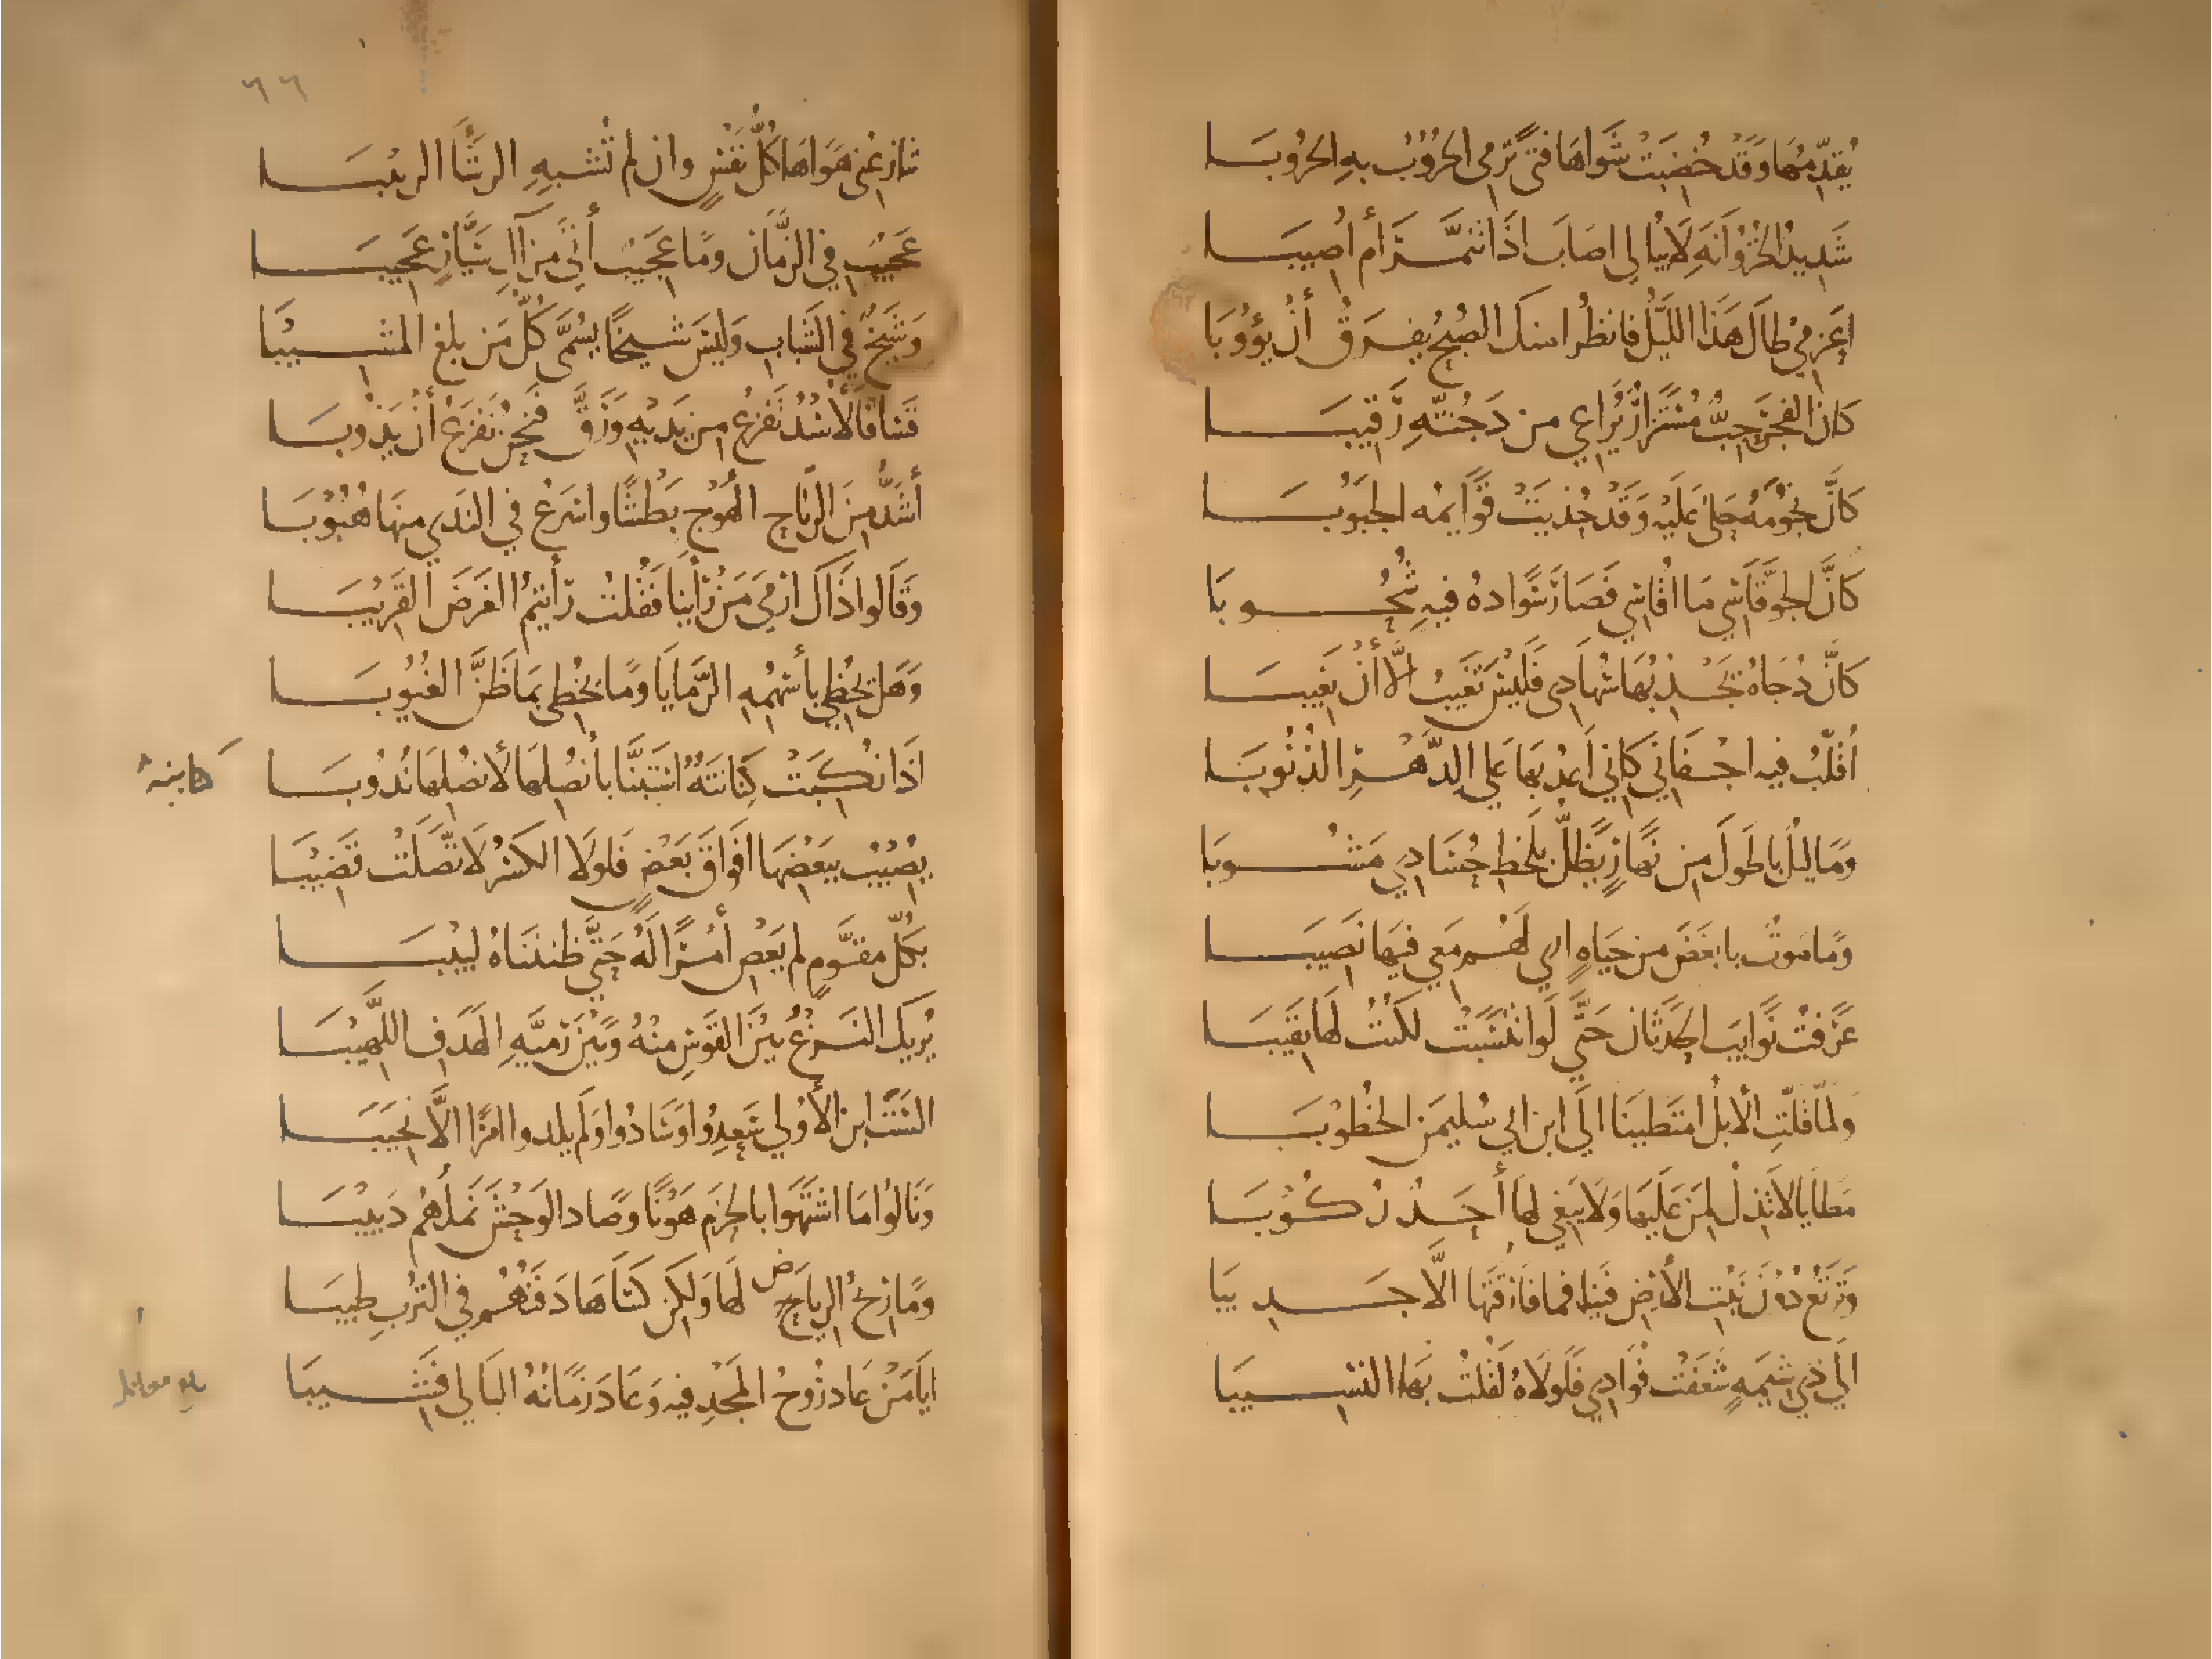 يُقدِّمُها وَقَدْ خُضِبَتْ شَواهَا فتىً تَرمى الحُرُوبُ بهِ الحُرُوبَا
شَدِيدُ الخُنْزُوَانَهِ لَا يُبالى اصَابَ اذَا تَنمَّرَ أم اُصِيبَا
اعَزمِي طَالَ هَذَا اللَّيْلُ فانظُر امنكَ الصُبحُ يفرَقُ أنْ يؤُوبَا
كَانَّ الفجرَ حِبٌّ مُسْتَزَارٌ يُرَاعِي من دَجُنّتهِ رَقيبَا
كَانَّ نجُومَهُ حَلىٌ عَلَيْهِ وَقَدْ حُذيَتْ قَوَايمُه الجَبُوبَا
كَانَّ الجوَّ قَاسَى مَا اُقَاسِي فَصَارَ سَوادهُ فيهِ شُحُوبَا
كَانَّ دُجَاهُ يَجْذِبُهَا سُهَادِى فَلَيْسَ تَغيبُ الَّا أنْ يَغيبَا
اُقَلّبُ فيه اجْفَانِي كَانِي اَعُدُّ بهَا عَلى الدَّهْرِ الذُنُوبَا
وَمَا ليْلٌ باطوَلَ مِن نهَارٍ يَظَلُّ بلَحظِ حُسَّادِي مَشُوبَا
وَمَا مَوْتٌ بابغَضَ من حيَاهٍ ارى لَهُم مَعِي فيهَا نَصِيبَا
عَرَفتُ نَوايبَ الحِدثَان حَتَّى لَو انتسَبَتْ لكنْتُ لهَا نقِيبَا
وَلمَّا قَلَّتِ الأبلُ امتَطيْنَا الَى ابن ابى سُليمَنَ الخُطُوبَا
مَطايَا لَا تذِلُّ لمَن عَلَيهَا وَلَا يَبغِي لهَا أحَدٌ رُكُوبَا
وَتَرتَعُ دُوْنَ نَبْتِ الأرْضِ فينَا فمَا فَارَقتُهَا الَّا جَدِيبَا
الَى ذِي شيمَهٍ شَغَفَتْ فُؤَادِي فَلَولَاهُ لَقُلتُ بهَا النَسيبَا
٦٦
تنَازعُنى هَوَاهَا كُلُّ نَفْسٍ وان لم تُشبهِ الرشَأ الربيبَا
عَجيبٌ في الزَّمَان ومَا عَجيبٌ أتَى مِن آلِ سَيَّارٍ عَجيبَا
وَشَيْخٌ في الشَبَابِ وَليْسَ شيخًا يُسَمَّى كُلُّ مَن بلغَ المَشيْبَا
قسَا فَالأُسْدُ تَفزَعُ مِن يَدَيْهِ وَرَقَّ فَنحنُ نَفزَعُ أنْ يَذُوبَا
أشَدُّ مِنَ الرّيَاحِ الهُوْجِ بَطْشًا واسْرَعُ في النَدى مِنهَا هُبُوبَا
وَقَالوا ذَاكَ ارْمَى مَنْ رَأينَا فَقُلتُ رَأيتُمُ الغَرَضَ القَرِيْبَا
وَهَل يُخطِى بأسْهُمِهِ الرَّمَايَا وَمَا يُخْطِى بمَا ظَنَّ الغُيُوبَا
اذَا نُكبَتْ كِنَانَتُهُ اسْتَبَنَّا بأنصُلِهَا لأنصُلِهَا نُدُوبَا
يصُيبُ بِبَعْضِهَا افْوَاقَ بَعْضٍ فَلولَا الكسْرُ لَاتَّصَلَتْ قَضيْبَا
بكُلِّ مُقوَّمٍ لم يَعْصِ أمْرًا لَهُ حَتَّى ظَنَنَّاهُ لبيْبَا
يُريكَ النَزعُ بَيْنَ القَوْسِ منْهُ وَبَيْنَ رَمْيِهِ الهَدَفَ اللَّهِيْبَا
السْتَ ابن الأُولى سَعِدُوا وَسَادُوا وَلَم يلدوا امْرًا الَّا نجَيبَا
وَنَالوُا مَا اشْتَهَوا بالحَزمِ هَوْنًا وَصَادَ الوَحْشَ نَملُهُمُ دَبيْبَا
وَمَا رِيحُ الريَاضِ لهَا وَلكِن كسَاهَا دَفنُهُم في التُرْبِ طيبَا
ايَا مَنْ عَادَ رُوحُ المَجْدِ فيه وَعَادَ زَمَانُهُ البَالى قَشيبَا